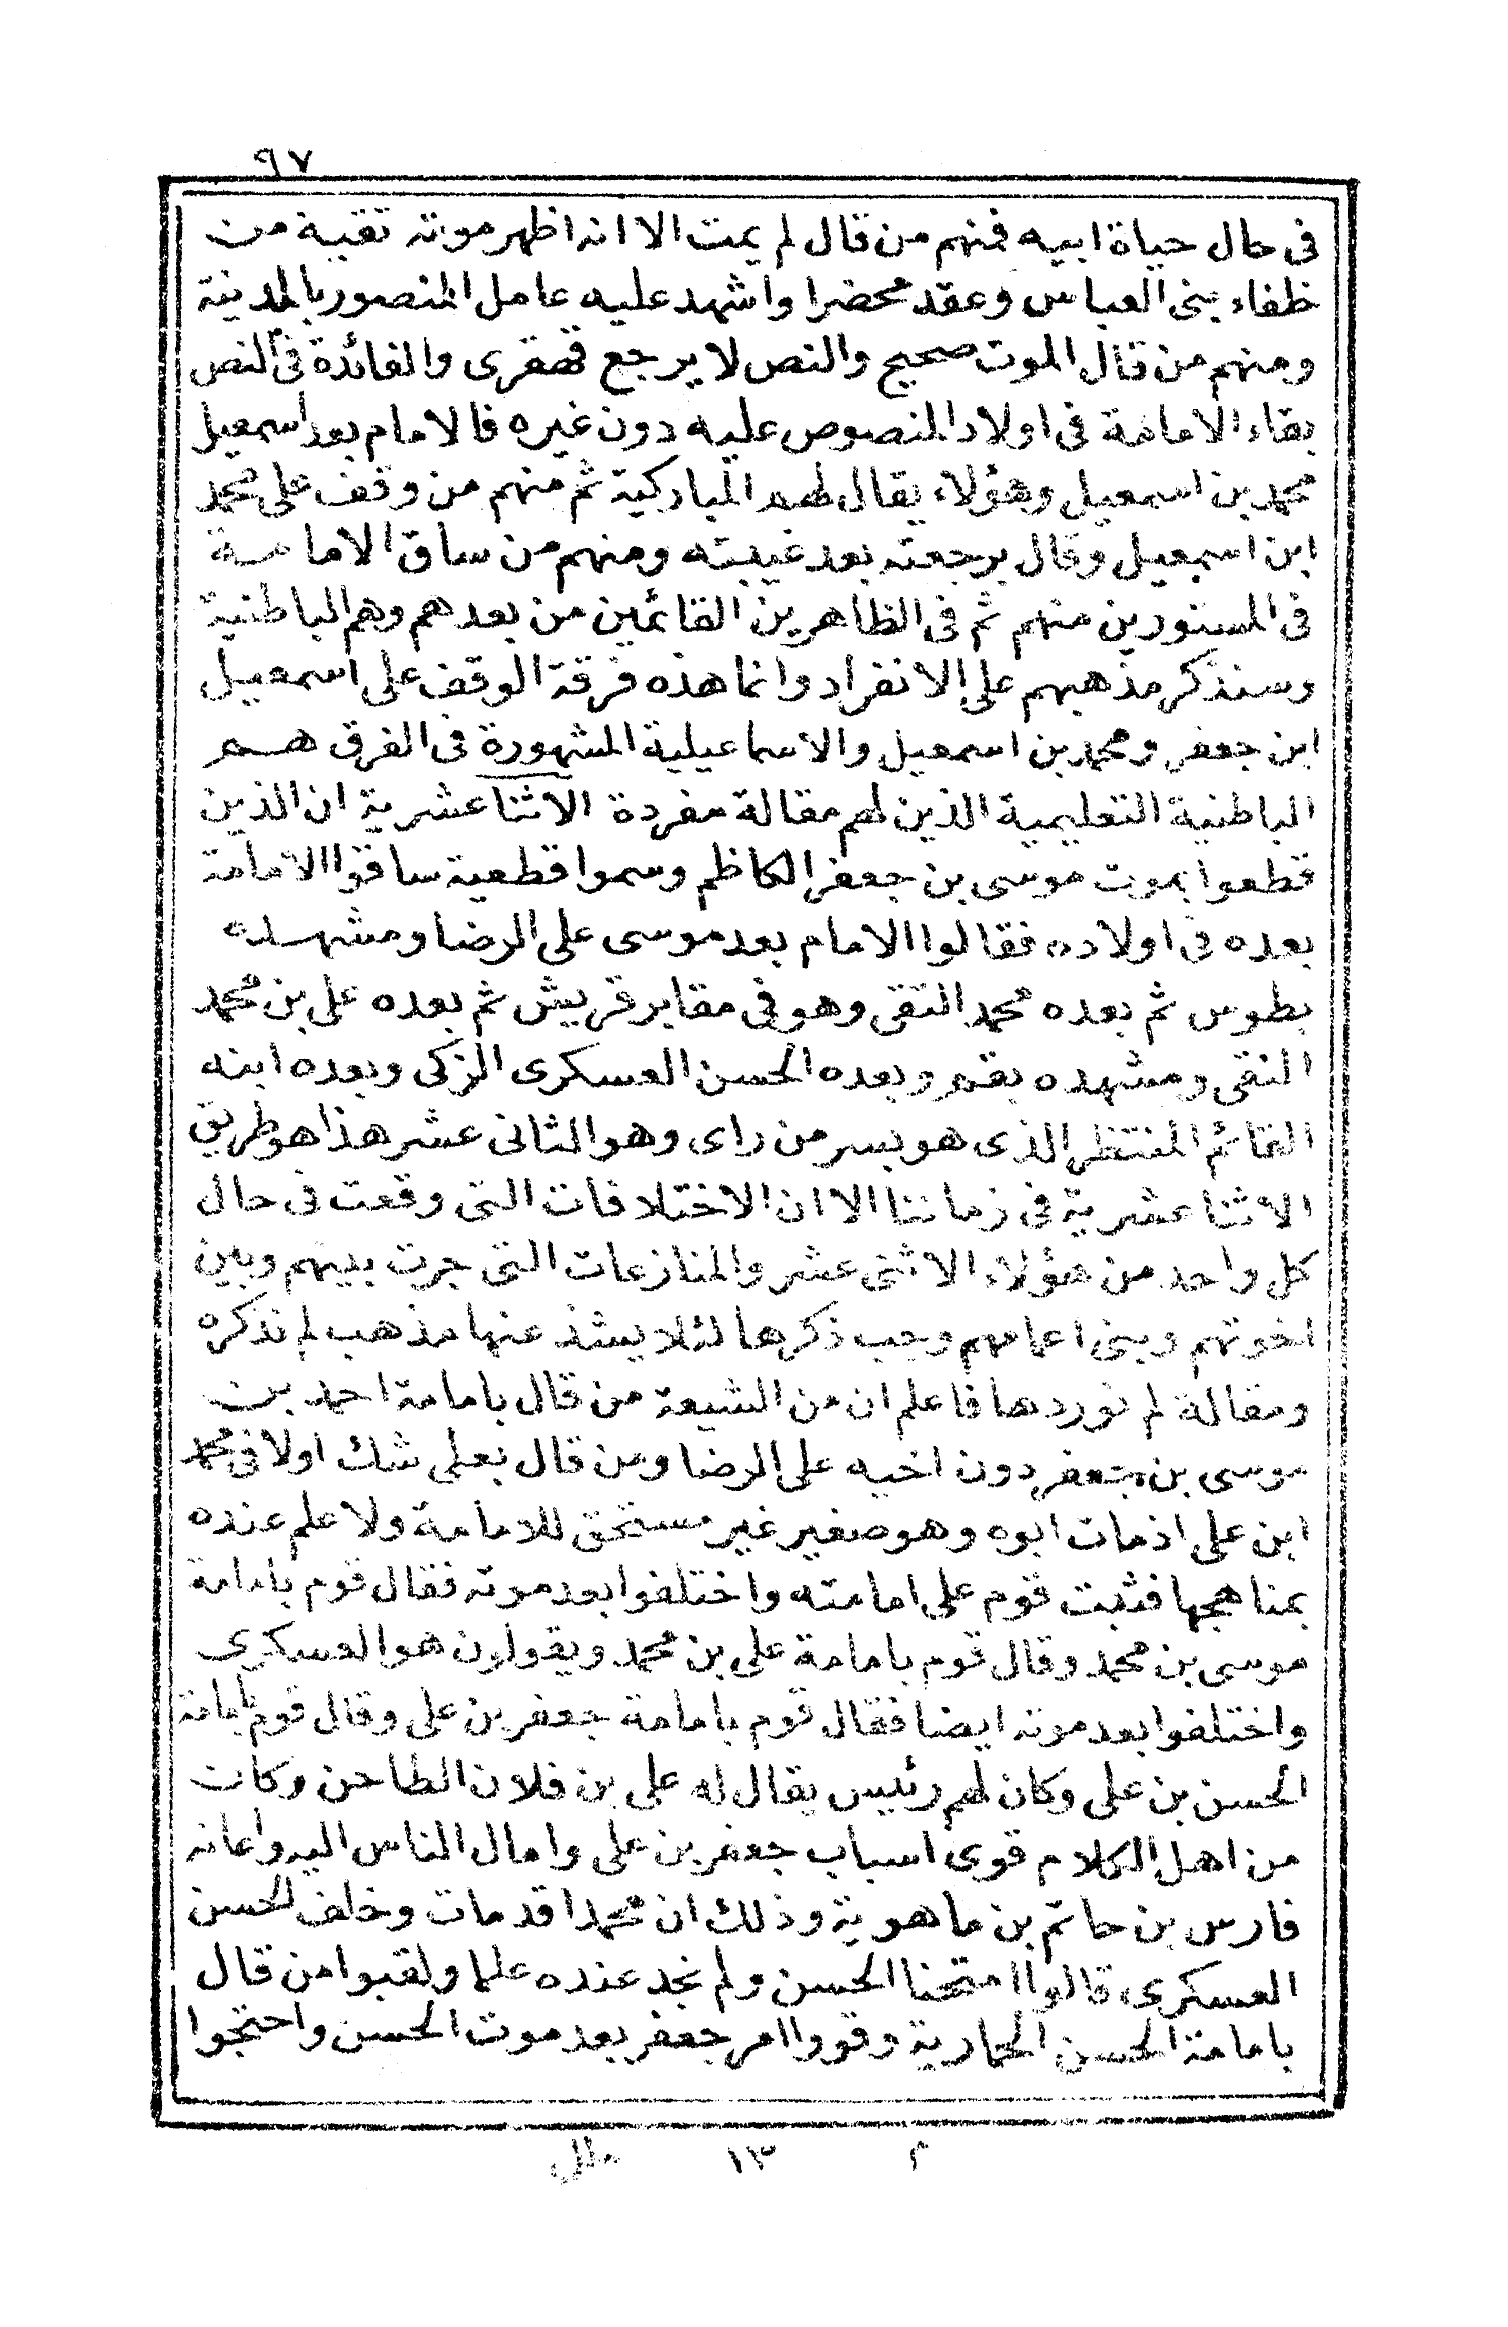 ٩٧
فى حال حياة ابيه فمنهم من قال لم يمت الا انه اظهر موته تقية من
خلفاء بنى العباس وعقد محضرا واشهد عليه عامل المنصور بالمدينة
ومنهم من قال الموت صحيح والنص لا يرجع قهقرى والفائدة فى النص
بقاء الامامة فى اولاد المنصوص عليه دون غيره فالامام بعد اسمعيل
محمد بن اسمعيل وهؤلاء يقال لهم المباركية ثم منهم من وقف على محمد
ابن اسمعيل وقال برجعته بعد غيبته ومنهم من ساق الامامة
فى المستورين منهم ثم فى الظاهرين القائمين من بعدهم وهم الباطنية
وسنذكر مذهبهم على الانفراد وانما هذه فرقة الوقف على اسمعيل
ابن جعفر ومحمد بن اسمعيل والاسماعيلية المشهورة فى الفرق هم
الباطنية التعليمية الذين لهم مقالة مفردة الاثنا عشرية ان الذين
قطعوا بموت موسى بن جعفر الكاظم وسموا قطعية ساقوا الامامة
بعده فى اولاده فقالوا الامام بعد موسى على الرضا ومشهده
بطوس ثم بعده محمد التقى وهو فى مقابر قريش ثم بعده على بن محمد
النقى ومشهده بقم وبعده الحسن العسكرى الزكى وبعده ابنه
القائم المنتظر الذى هو بسر من راى وهو الثانى عشر هذا هو طريق
الاثنا عشرية فى زماننا الا ان الاختلافات التى وقعت فى حال
كل واحد من هؤلاء الاثنى عشر والمنازعات التى جرت بينهم وبين
اخوتهم وبنى اعمامهم وجب ذكرها لئلا يشذ عنها مذهب لم نذكره
ومقالة لم نوردها فاعلم ان من الشيعة من قال بامامة احمد بن
موسى بن جعفر دون اخيه على الرضا ومن قال بعلى شك اولا فى محمد
ابن على اذ مات ابوه وهو صغير غير مستحق للامامة ولا علم عنده
بمناهجها فثبت قوم على امامته واختلفوا بعد موته فقال قوم بامامة
موسى بن محمد وقال قوم بامامة على بن محمد ويقولون هو العسكرى
واختلفوا بعد موته ايضا فقال قوم بامامة جعفر بن على وقال قوم بامامة
الحسن بن على وكان لهم رئيس يقال له على بن فلان الطاحن وكان
من اهل الكلام قوى اسباب جعفر بن على وامال الناس اليه واعانه
فارس بن حاتم بن ماهوية وذلك ان محمدا قد مات وخلف الحسن
العسكرى قالوا امتحنا الحسن ولم نجد عنده علما ولقبوا من قال
بامامة الحسن الحمارية وقووا امر جعفر بعد موت الحسن واحتجوا
م ١٣ ملل